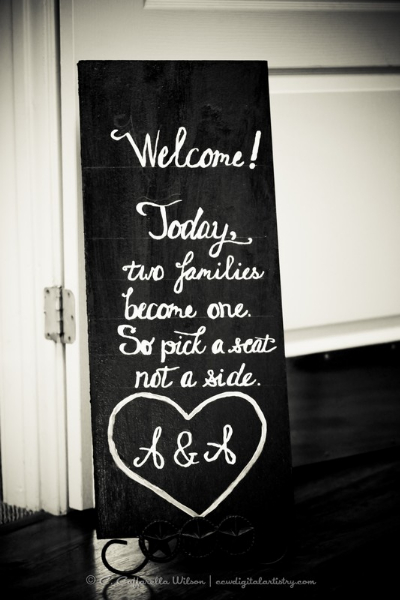 Welcome!
Today,
two families
become one.
So pick a seat
not a side.
A & A
© C. Caffarella Wilson | ccwdigitalartistry.com